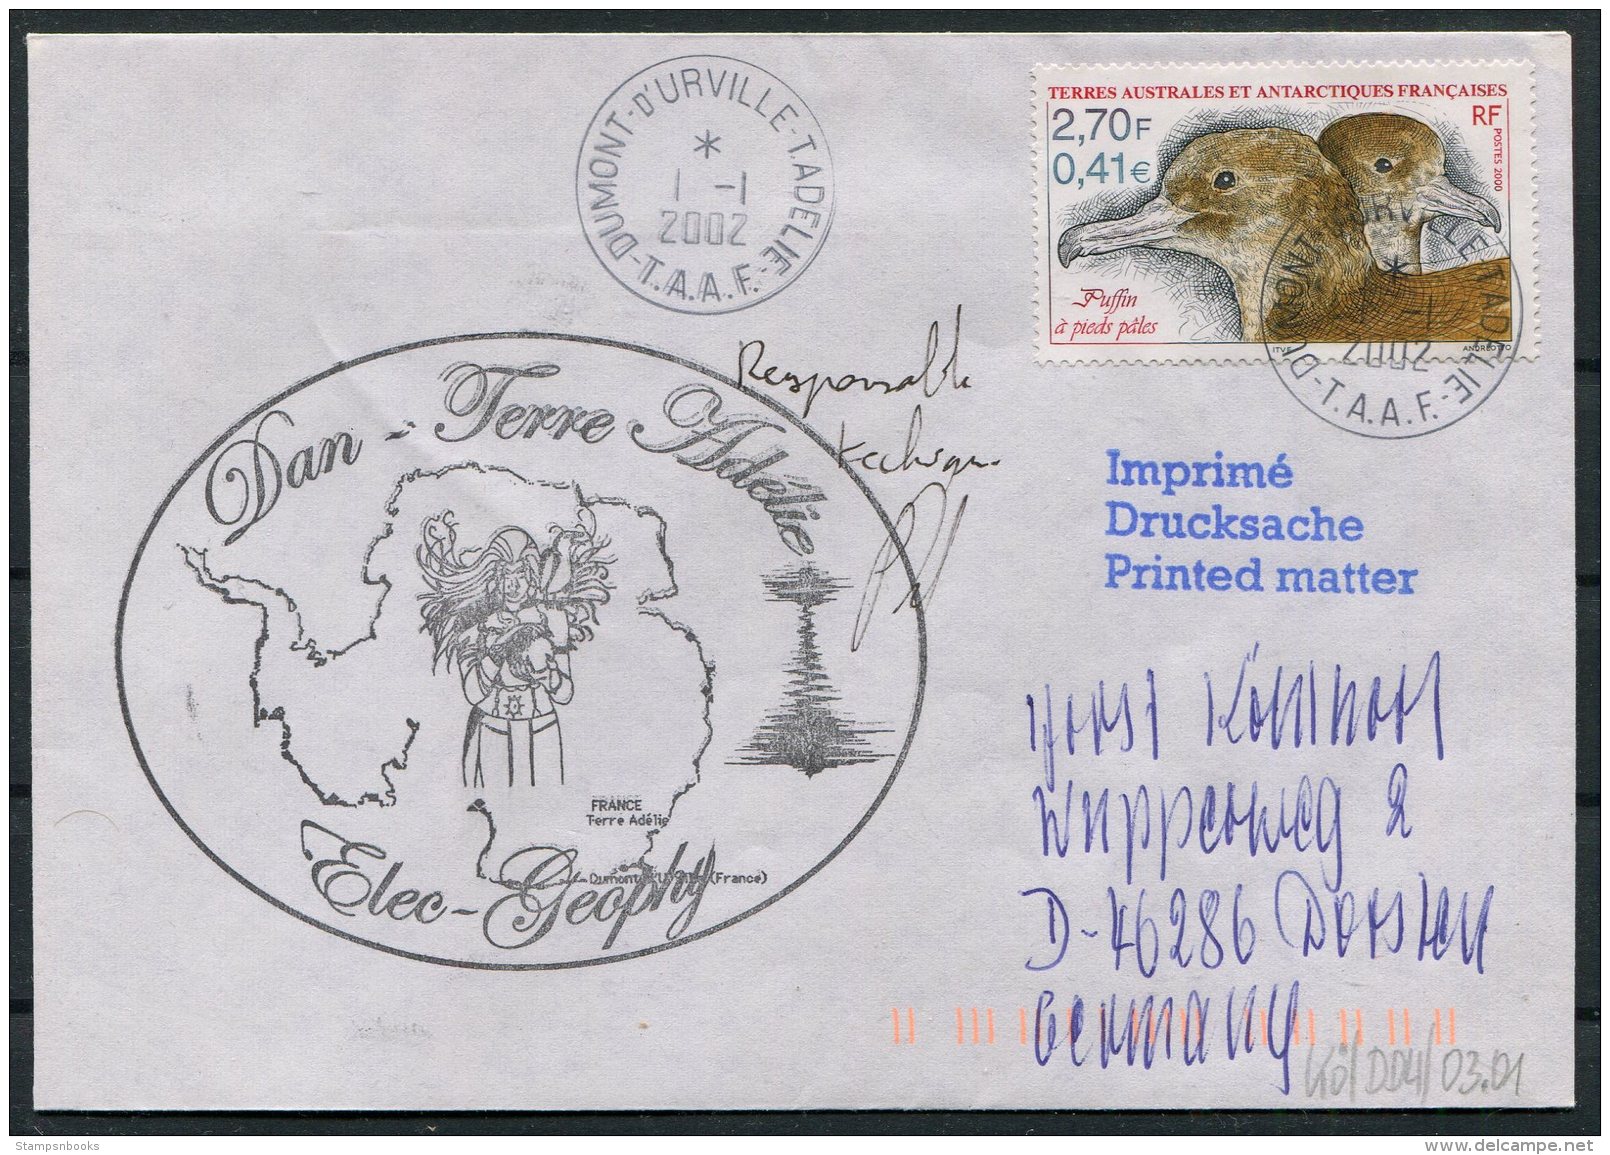 DUMONT-D'URVILLE-T.ADELIE
*
1 -1
2002
-T.A.A.F.-
TERRES AUSTRALES ET ANTARCTIQUES FRANÇAISES
2,70F
RF
0,41€
POSTES 2000
Puffin
à pieds pâles
ITVF
ANDREOTTO
2002
-T.A.A.F.-
Responsable
technique
Dan - Terre Adélie
Imprimé
Drucksache
Printed matter
FRANCE
Terre Adélie
(France)
Elec-Geophy
Horst
Wupperweg 2
D-46286 Dorsten
Germany
Kö/DDU/03.01
Stampsnbooks
delcampe.net